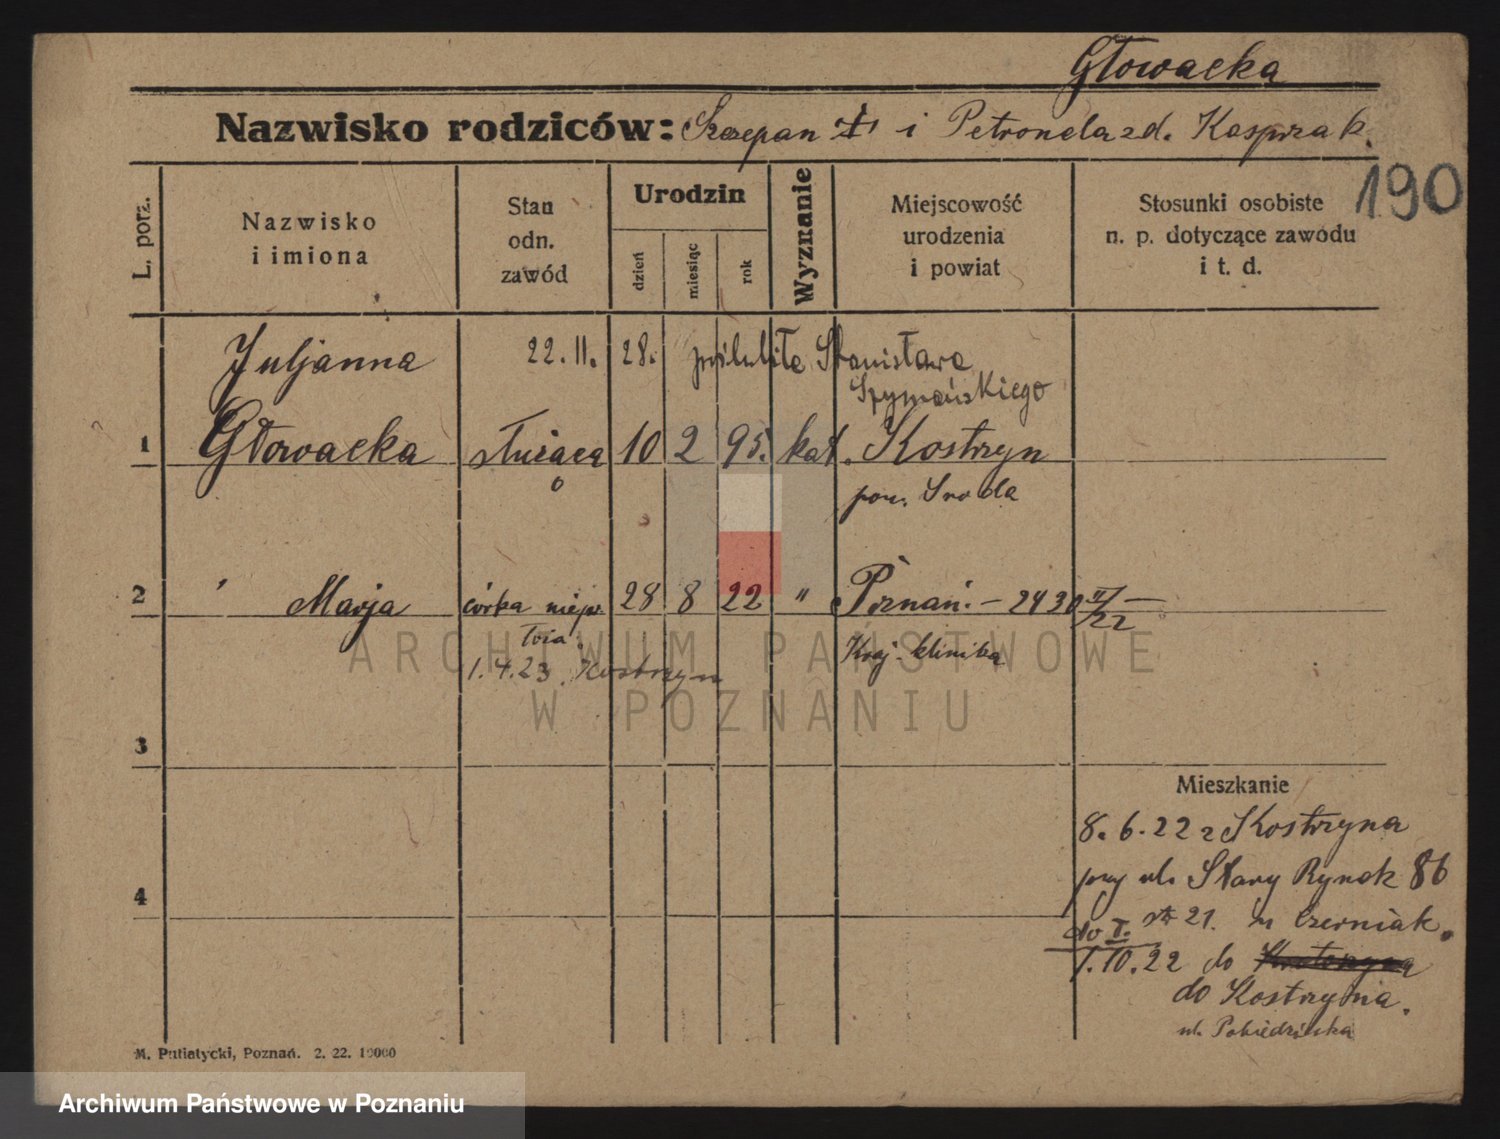 Głowacka
Nazwisko rodziców: Szczepan i Petronela zd. Kasprzak.
190
L. porz.
Nazwisko
i imiona
Stan
odn.
zawód
Urodzin
dzień
miesiąc
rok
Wyznanie
Miejscowość
urodzenia
i powiat
Stosunki osobiste
n. p. dotyczące zawodu
i t. d.
Juljanna 22. 11. 28. poślubiła Stanisława
Szymańskiego
1 Głowacka służąca 10 2 95. kat. Kostrzyn
pow. Sroda
2 Marja córka 28 8 22 " Poznań. – 2430 II/22
1.4.23 Kostrzyn
Kraj. klinika
ARCHIWUM PAŃSTWOWE
W POZNANIU
3
4
Mieszkanie
8. 6. 22 z Kostrzyna
przy ul. Stary Rynek 86
do I. 21. u Czerniak.
1. 10. 22 do
do Kostrzyna.
ul. Pobiedziska
M. Putiatycki, Poznań. 2. 22. 10000
Archiwum Państwowe w Poznaniu